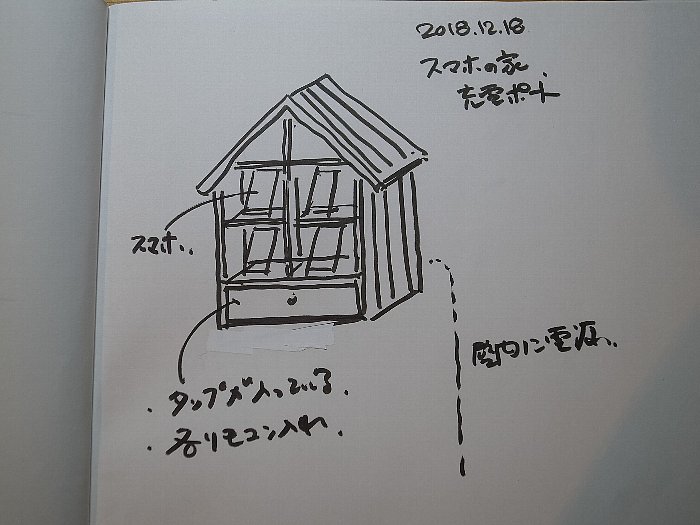 2018.12.18
スマホの家.
充電ポート
スマホ..
・タップが入っている.
・各リモコン入れ.
壁内に電源.